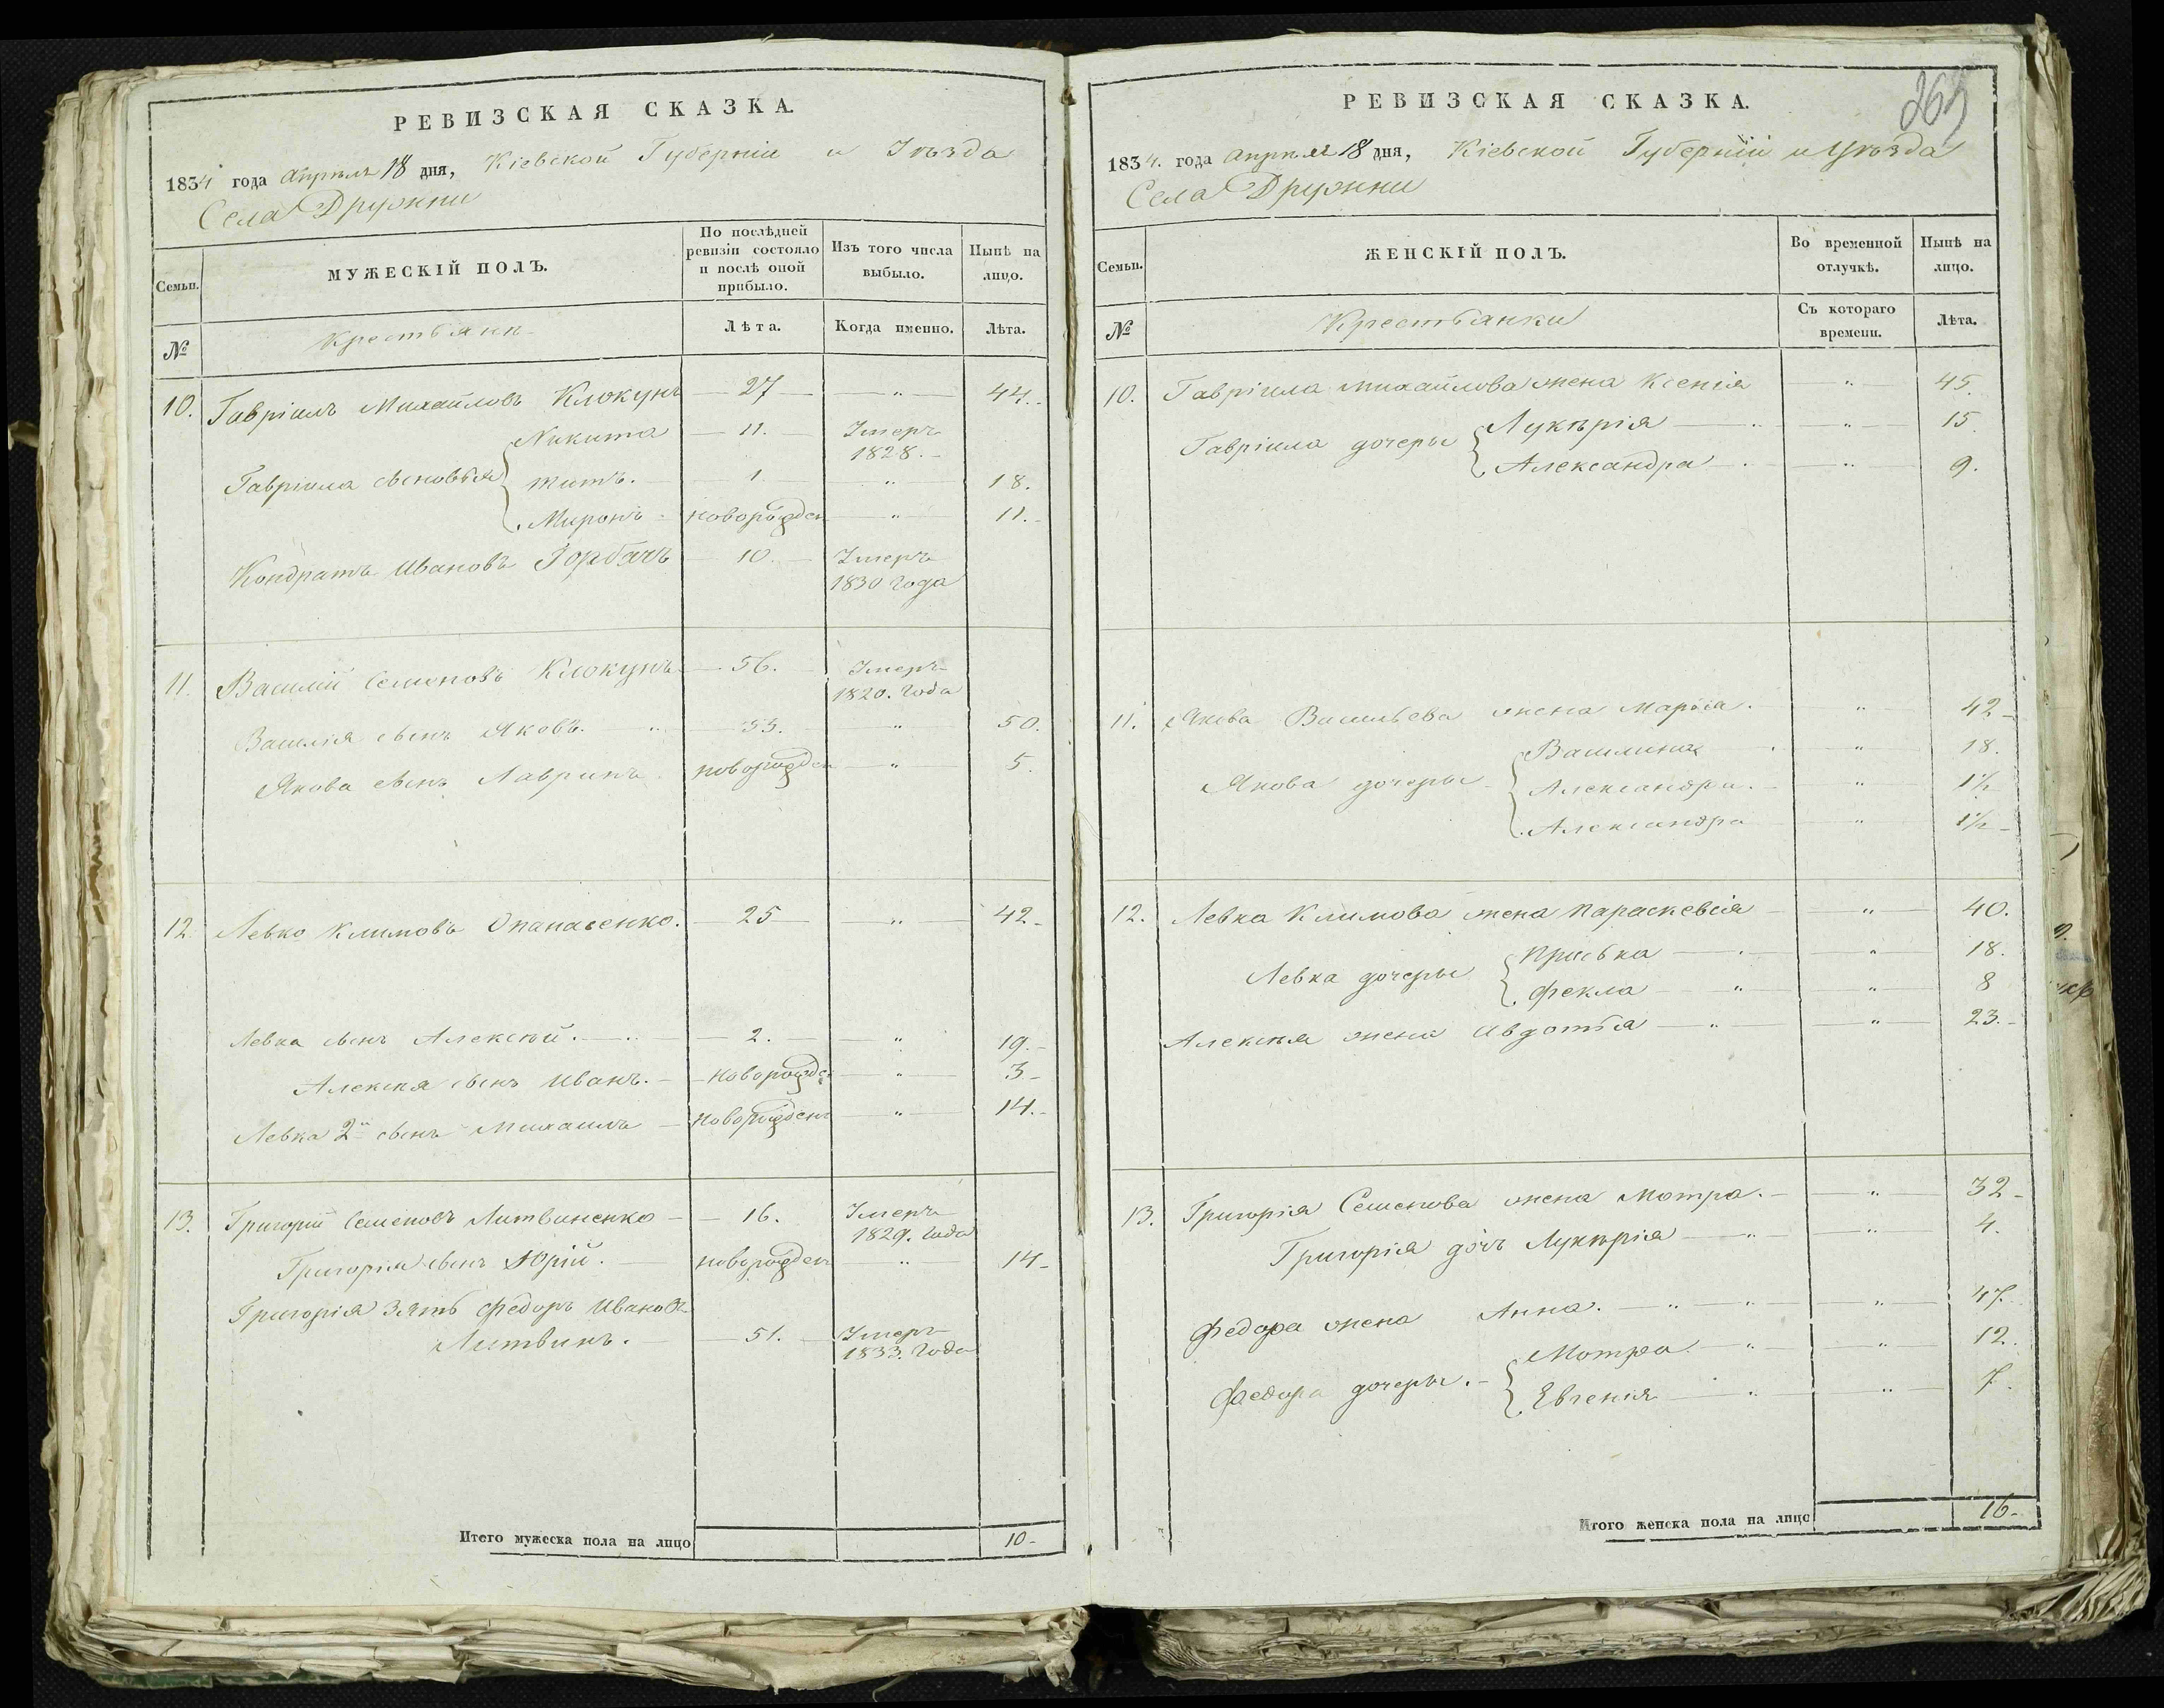 РЕВИЗСКАЯ СКАЗКА.
1834 года Апреля 18 дня, Кіевской Губерніи и Уѣзда
Села Дружни
Семьи.
МУЖЕСКІЙ ПОЛЪ.
По послѣдней ревизіи состояло и послѣ оной прибыло.
Изъ того числа выбыло.
Нынѣ на лицо.
№
Крестьяне
Лѣта.
Когда именно.
Лѣта.
10. Гавріилъ Михайловъ Клокунъ 27 " 44.
Никита 11. Умеръ 1828.
Гавріила сыновья { Титъ. 1 " 18.
Миронъ новорожден " 11.
Кондратъ Ивановъ Горбачъ 10. Умеръ 1830 года
11. Василій Семеновъ Клокунъ 56. Умеръ 1820. года
Василія сынъ Яковъ. 33. " 50.
Якова сынъ Лавринъ. новорожден " 5.
12. Левко Климовъ Опанасенко. 25 " 42
Левка сынъ Алексѣй. 2. " 19.
Алексѣя сынъ Иванъ. новорожде " 3
Левка 2й сынъ Михаилъ новорожденъ " 14.
13. Григорій Семеновъ Литвиненко 16. Умеръ 1829. года
Григорія сынъ Юрій. новорожден " 14
Григорія зять Федоръ Ивановъ
Литвинъ. 51. Умеръ 1833. года
Итого мужеска пола на лицо 10
269
РЕВИЗСКАЯ СКАЗКА.
1834. года Апреля 18 дня, Кіевской Губерніи и Уѣзда
Села Дружни
Семьи.
ЖЕНСКІЙ ПОЛЪ.
Во временной отлучкѣ.
Нынѣ на лицо.
№
Крестьянки
Съ котораго времени.
Лѣта.
10. Гавріила Михайлова жена Ксенія " 45.
Гавріила дочеры { Лукѣрія " 15.
Александра " 9.
11. Якова Васильева жена Марія. " 42
Василина " 18.
Якова дочеры { Александра. " 1½
Александра " 1½
12. Левка Климова жена Параскевія " 40.
Левка дочеры { Приська " 18.
Фекла " 8
Алексѣя жена Авдотія " 23.
13. Григорія Семенова жена Мотра. " 32
Григорія дочь Лукѣрія " 4.
Федора жена Анна. " 47.
Федора дочеры. { Мотра " 12.
Евгенія " 7.
Итого женска пола на лицо 16.